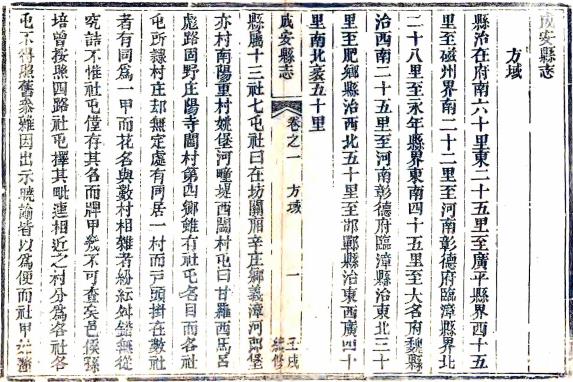 成安縣志
方域
縣治在府南六十里東二十五里至廣平縣界西十五
里至磁州界南二十二里至河南彰德府臨漳縣界北
二十八里至永年縣界東南四十五里至大名府魏縣
治西南二十五里至河南彰德府臨漳縣治東北三十
里至肥鄉縣治西北五十里至邯鄲縣治東西廣四十
里南北袤五十里
成安縣志 卷之一 方域 一 壬戌續修
縣屬十三社七屯社曰在坊關廂辛庄鄉義漳河郎堡
亦村南陽重村姚堡河疃堤西閻村屯曰甘羅西馬呂
彪路固野庄陽寺閻村第四鄉雖有社屯名目而各社
屯所隷村庄却無定處有同居一村而戸頭掛在數社
者有同為一甲而花名與數村相雜者紛紜舛錯無從
究詰不惟社屯僅存其名而牌甲幾不可查矣邑侯孫
培曾按照四路社屯擇其毗連相近之村分為各社各
屯不得照舊叅雜因出示曉諭皆以為便而社甲